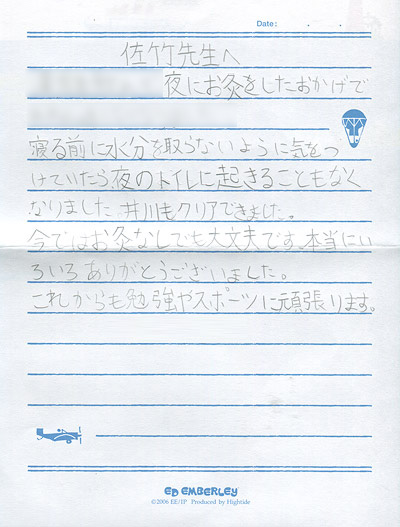 Date: . .
佐竹先生へ
夜にお灸をしたおかげで
寝る前に水分を取らないように気をつ
けていたら夜のトイレに起きることもなく
なりました。井川もクリアできました。
今ではお灸なしでも大丈夫です。本当にい
ろいろありがとうございました。
これからも勉強やスポーツに頑張ります。
ED EMBERLEY
©2006 EE/IP Produced by Hightide